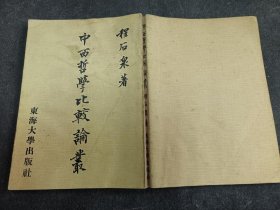 程石泉著
中西哲學比較論叢
東海大學出版社